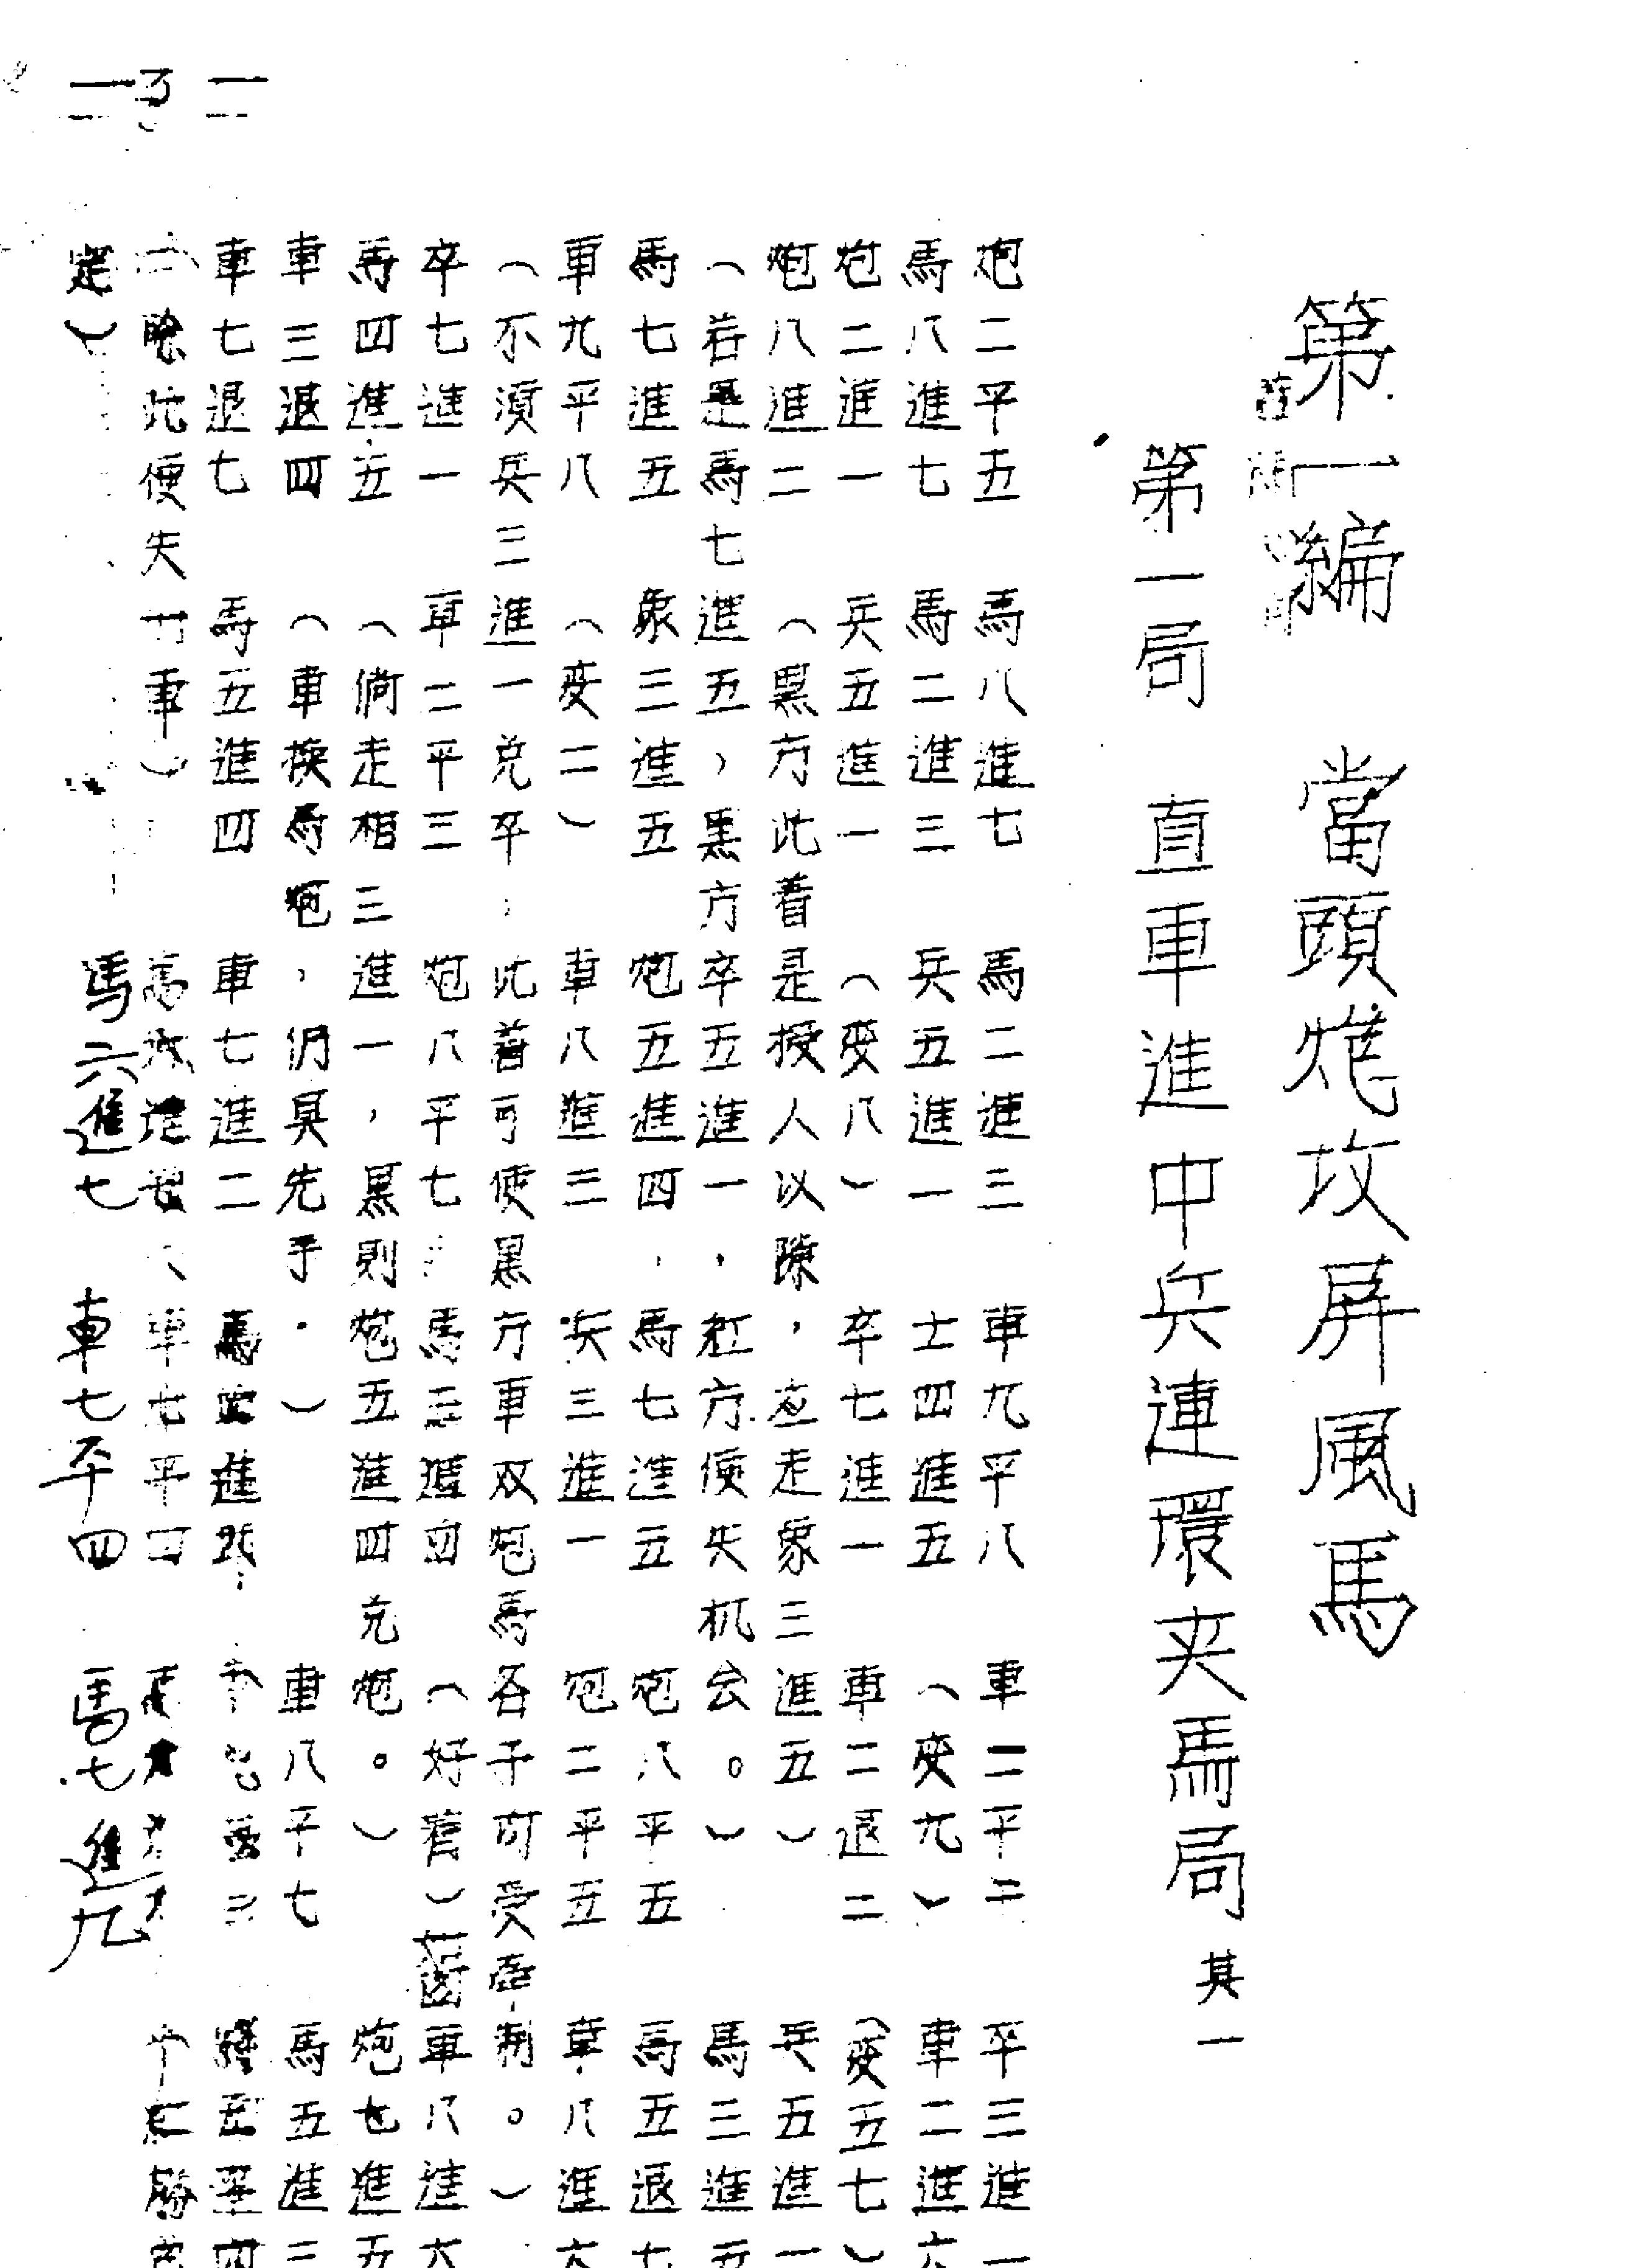 第一編 當頭炮攻屏風馬
第一局 直車進中兵連環夹馬局 其一
炮二平五 馬八進七 馬二進三 車九平八 車一平二 卒三進一
馬八進七 馬二進三 兵五進一 士四進五 (变九) 車二進六
炮二進一 兵五進一 (变八) 卒七進一 車二退二 (变五七)
炮八進二 (黑方此着是授人以隙,應走象三進五) 兵五進一
(若是馬七進五,黑方卒五進一,紅方便失机会。) 馬三進五
馬七進五 象三進五 炮五進四 馬七進五 炮八平五 馬五退七
車九平八 (变二) 車八進三 兵三進一 炮二平五 車八進六
(不須兵三進一兑卒,此着可使黑方車双炮馬各子可受牽制。)
卒七進一 車二平三 炮八平七 馬三進四 (好着) 車八進六
馬四進五 (倘走相三進一,黑則炮五進四充炮。) 炮七進五
車三退四 (車換馬炮,們具先手。) 車八平七 馬五進三
車七退七 馬五進四 車七進二
(除此便失車) 車七平四
定) 馬六進七 車七平四 馬七進九